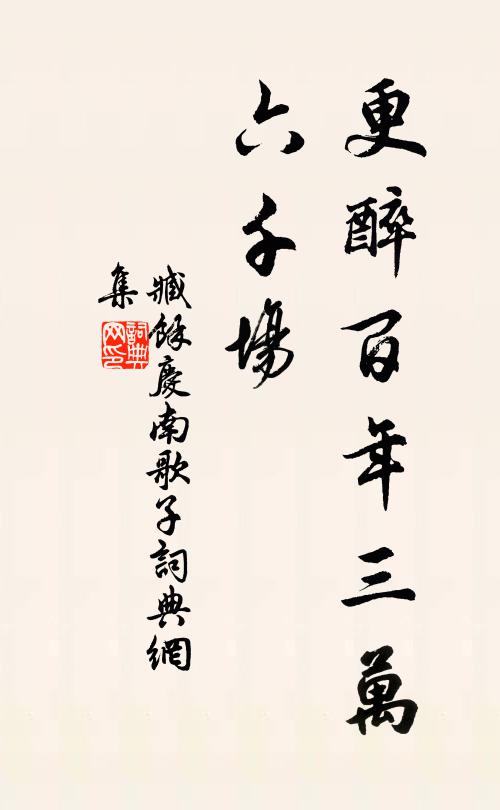 更醉百年三萬
六千場
臧餘慶南歌子詞典網
集
詞典
网印